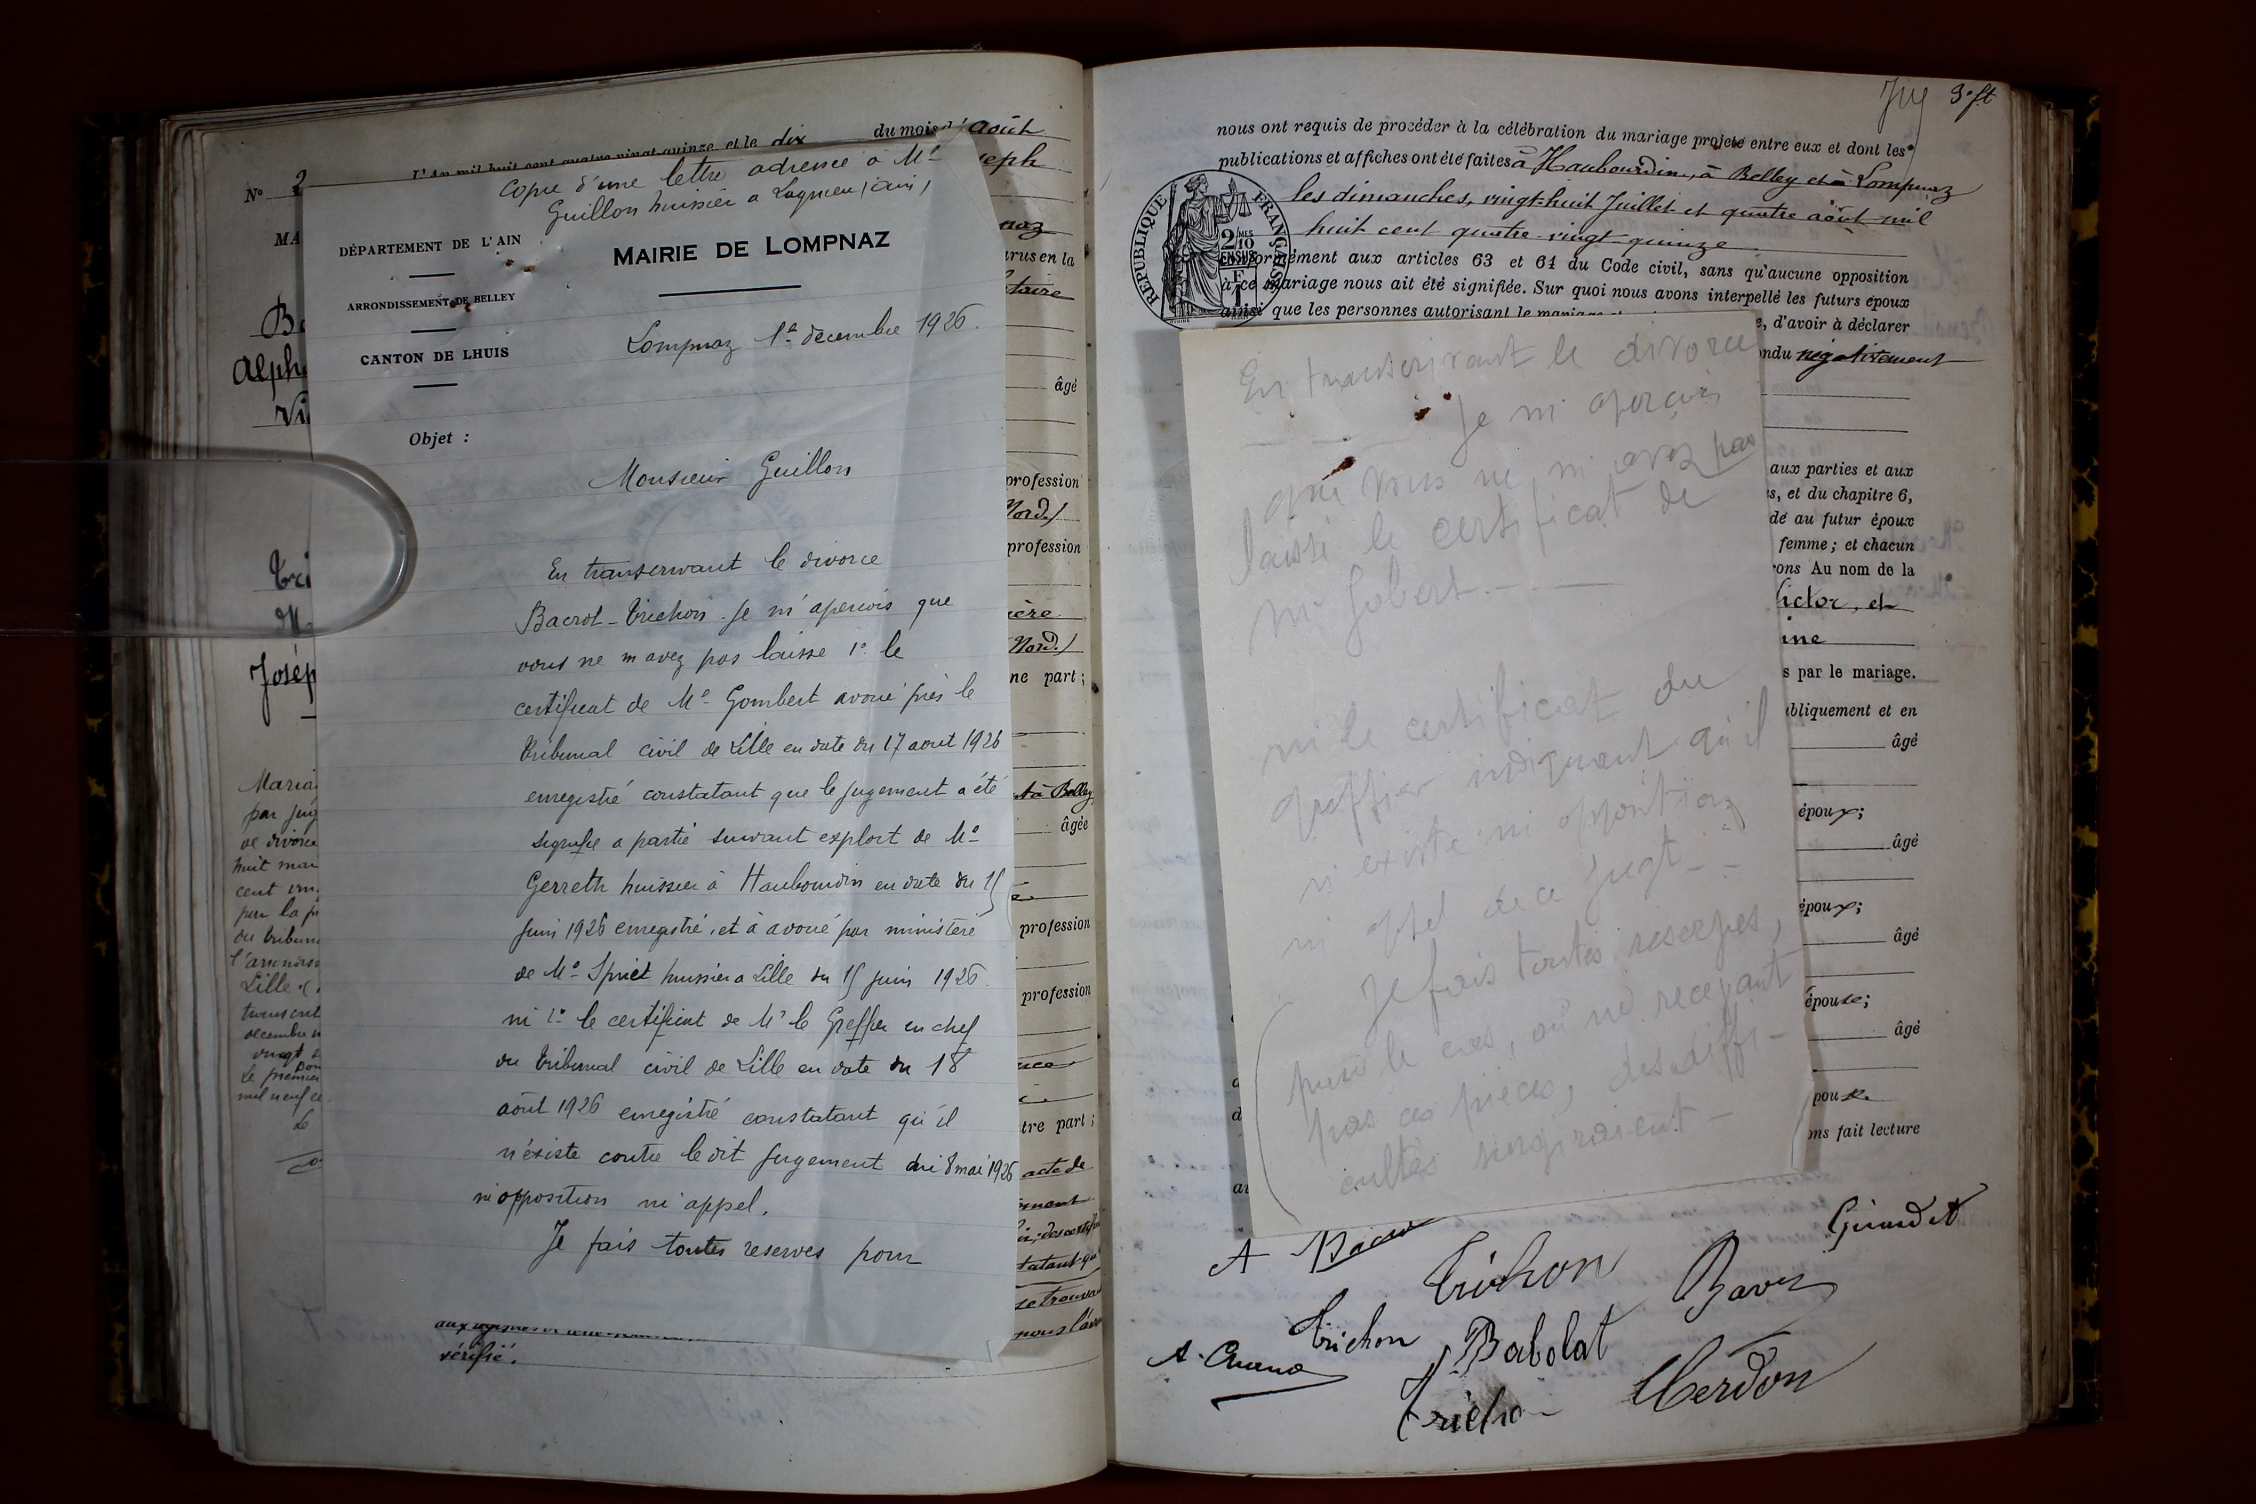 N° 2
L'An mil huit cent quatre vingt quinze et le dix du mois d' août
MA
Alph
Joséph
copie d'une lettre adressée à Mr
Guillon huissier a Lagnieu (ain)
DÉPARTEMENT DE L'AIN
MAIRIE DE LOMPNAZ
ARRONDISSEMENT DE BELLEY
CANTON DE LHUIS
Lompnaz 1er decembre 1926.
Objet :
Monsieur Guillon
En transcrivant le divorce
Bacrot-Trichon. Je m'apercois que
vous ne m avez pas laisse 1° le
certificat de Me Gombert avoué près le
tribunal civil de Lille en date du 17 aout 1926
enregistré constatant que le jugement a été
signifie a partie suivant exploit de Me
Gerreth huissier à Haubourdin en date du 15
juin 1926 enregistré, et à avoué par ministère
de Me Spriet huissier a Lille du 15 juin 1926.
ni 2° le certificat de Mr le Greffier en chef
du tribunal civil de Lille en date du 18
août 1926 enregistré constatant qu'il
n'éxiste contre le dit jugement du 8 mai 1926
ni opposition ni appel.
Je fais toutes reserves pour
Maria
par jug
de divorce
huit mai
cent vin
par la
du tribun
l'arrondiss
Lille
transcrit
décembre
vingt
Le premier
mil neuf ce
âgé
profession
Nord)
profession
Nord)
ne part ;
à Belley
âgée
profession
profession
tre part ;
acte de
se trouva
vérifié.
3e ft
nous ont requis de procéder à la célébration du mariage projeté entre eux et dont les
publications et affiches ont été faites à Haubourdin, à Belley et à Lompnaz
les dimanches, vingt-huit Juillet et quatre août mil
huit cent quatre-vingt-quinze
RÉPUBLIQUE FRANÇAISE
2/10 MES EN SUS
conformément aux articles 63 et 64 du Code civil, sans qu'aucune opposition
à ce mariage nous ait été signifiée. Sur quoi nous avons interpellé les futurs époux
ainsi que les personnes autorisant le mariage
e, d'avoir à déclarer
ndu négativement
En transcrivant le divorce
— — Je m aperçois
que vous ne m avez pas
laissé le certificat de
Me Gobert. — —
ni le certificat du
greffier indiquant qu'il
n existe ni opposition
ni appel de ce jugt — -
Je fais toutes reserves,
pour le cas, où ne recevant
pas ces pièces, des diffi-
cultés surgiraient —
aux parties et aux
s, et du chapitre 6,
dé au futur époux
femme ; et chacun
rons Au nom de la
Victor, et
ine
s par le mariage.
bliquement et en
âgé
époux;
âgé
époux;
âgé
épouse;
âgé
pouse
ons fait lecture
Girardet
A Bacro
Trichon
Bavoz
Trichon
Babolat
Trichon
Merdon